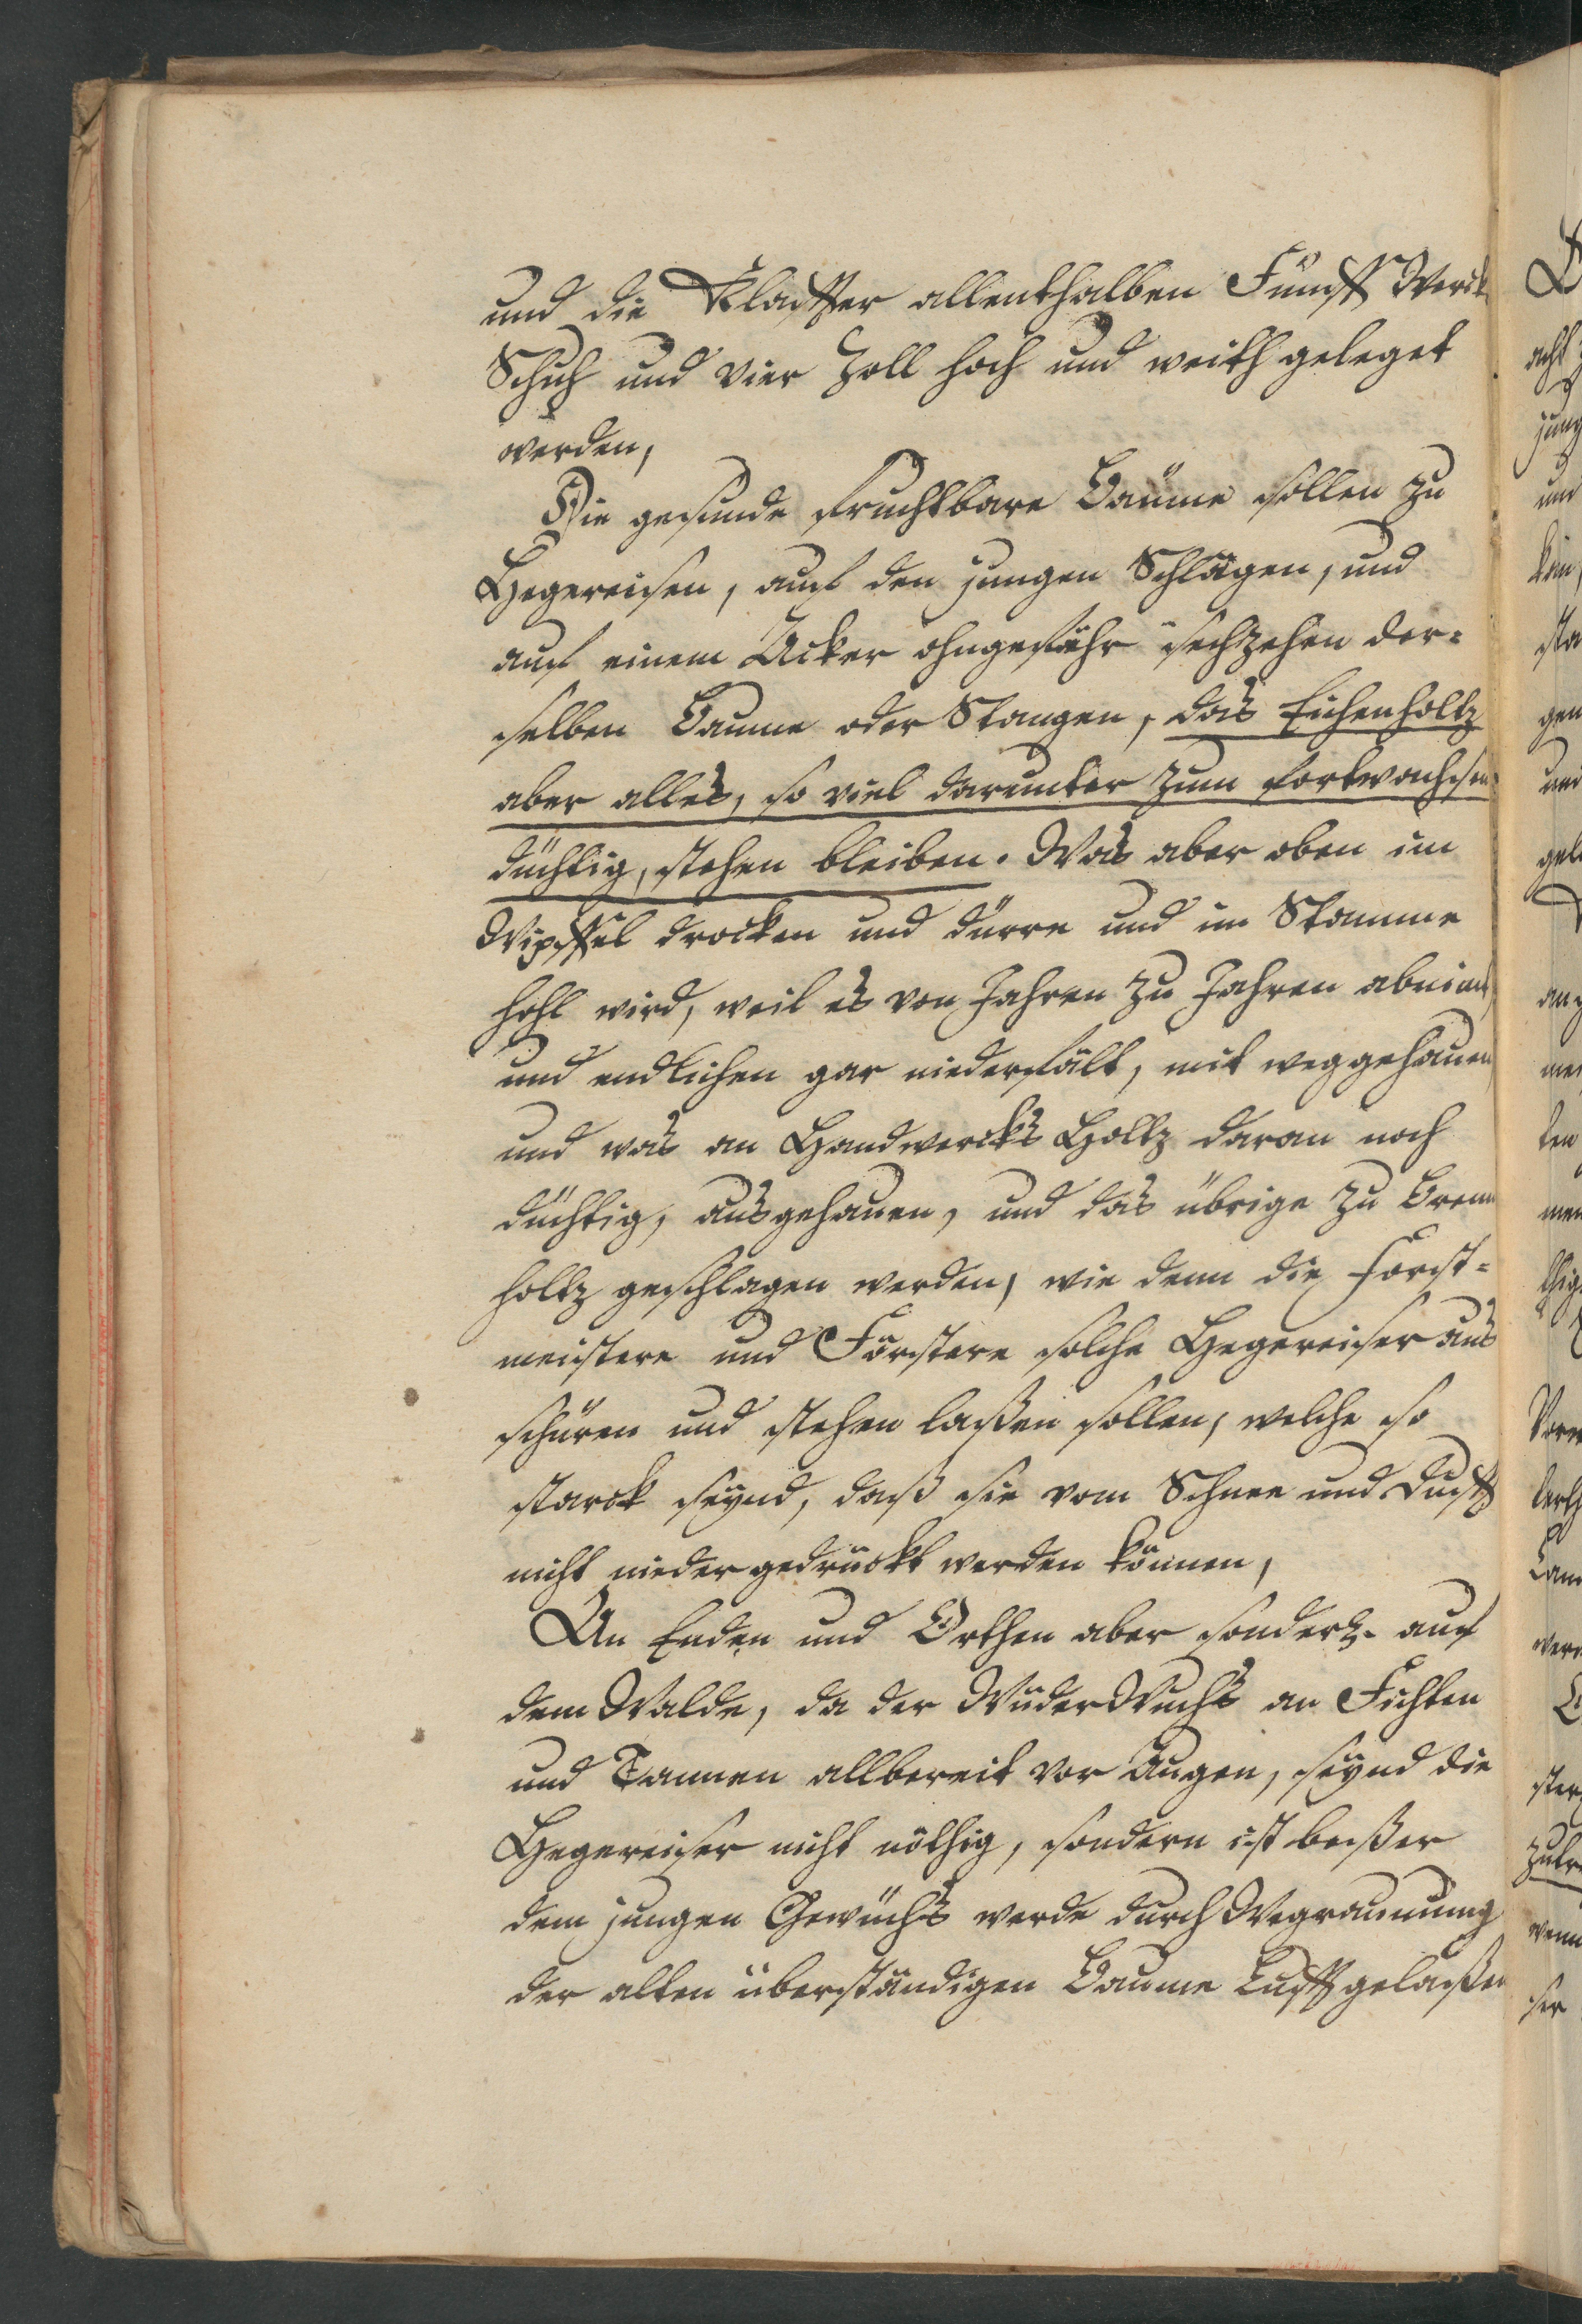 und die Klaffter allenthalben Fünff Werck
Schuh und vier Zoll hoch und weith geleget
werden,
Die gesunde fruchtbare Bäume sollen zu
Hegereisen, auf den jungen Schlägen, und
auf einem Acker ohngefähr sechzehen der-
selben Baume oder Stangen, das Eichenholtz
aber alles, so viel darunter zum fortwachsen
düchtig, stehen bleiben. Was aber oben im
Wipffel drocken und dürre und im Stamme
hohl wird, weil es von Jahren zu Jahren abnimt,
und endlichen gar niederfält, mit weggehauen
und was an Handwercks Holtz daran noch
düchtig, ausgehauen, und das übrige zu Brenn
holtz geschlagen werden, wie denn die Forst-
meistere und Förstere solche Hegereiser aus
schüren und stehen laßen sollen, welche so
starck seynd, daß sie vom Schnee und Dufft
nicht niedergedrückt werden können,
An Enden und Orthen aber sonderl. auf
dem Walde, da der WiederWuchs an Fichten
und Tannen allbereit vor Augen, seynd die
Hegereiser nicht nöthig, sondern ist beßer
dem jungen Gewüchs werde durch Wegraumung
der alten überständigen Baume Lufft gelaßen